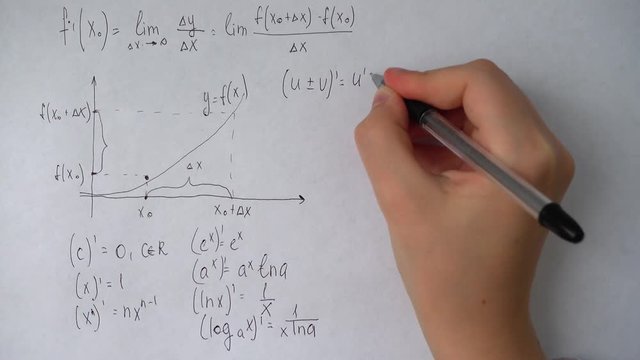 f'(x₀) = lim Δx→0 Δy/Δx = lim f(x₀+Δx)-f(x₀)/Δx
(u ± v)' = u'
y=f(x)
f(x₀+Δx)
f(x₀)
Δx
x₀ x₀+Δx
(c)' = 0, C∈R
(x)' = 1
(xⁿ)' = nxⁿ⁻¹
(eˣ)' = eˣ
(aˣ)' = aˣ lna
(lnx)' = 1/x
(logₐx)' = 1/x lna